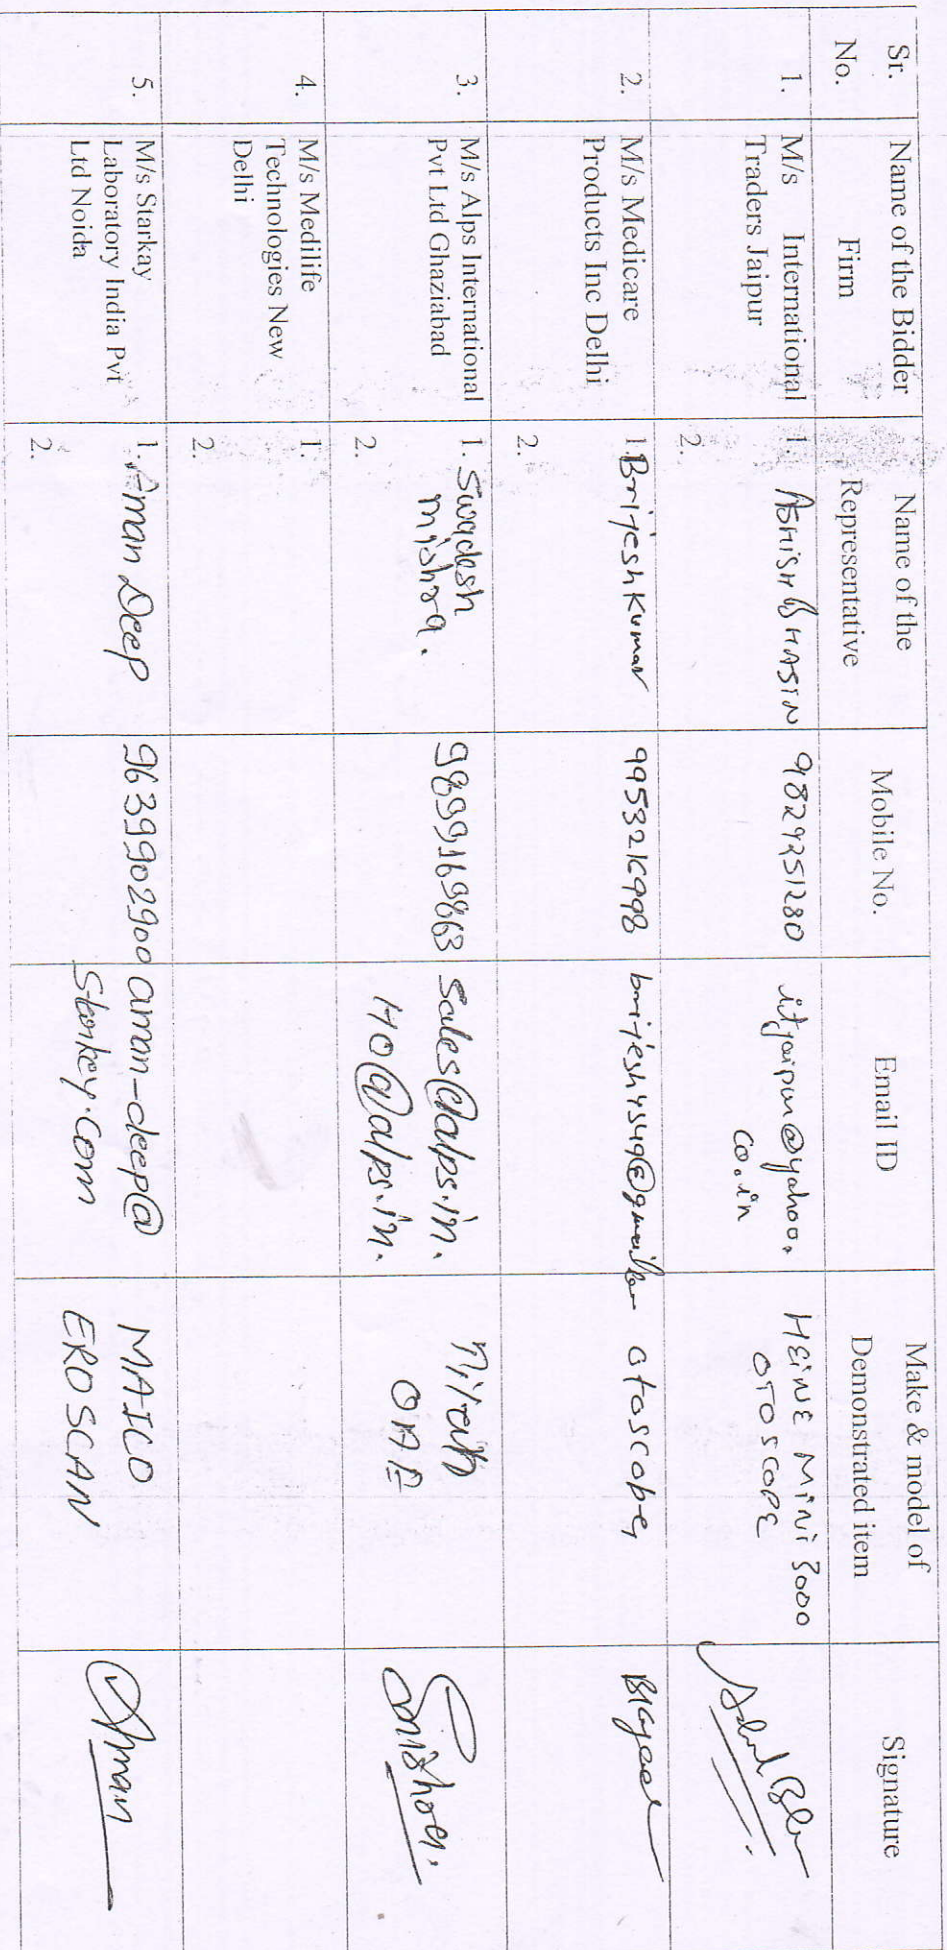 Sr. No.
Name of the Bidder Firm
Name of the Representative
Mobile No.
Email ID
Make & model of Demonstrated item
Signature
1.
M/s International
Traders Jaipur
1. ASHISH BHASIN
2.
9829251280
itjaipur@yahoo.
co.in
HEINE MINI 3000
OTOSCOPE
2.
M/s Medicare
Products Inc Delhi
1. Brijesh Kumar
2.
otoscope
3.
M/s Alps International
Pvt Ltd Ghaziabad
1. Swadesh
Mishra.
2.
9899169863
Sales@alps.in.
HO@alps.in.
OAE
4.
M/s Medilife
Technologies New
Delhi
1.
2.
5.
M/s Starkay
Laboratory India Pvt
Ltd Noida
1. Aman Deep
2.
9639902900
aman-deep@
Starkey.com
MAICO
EROSCAN
Aman